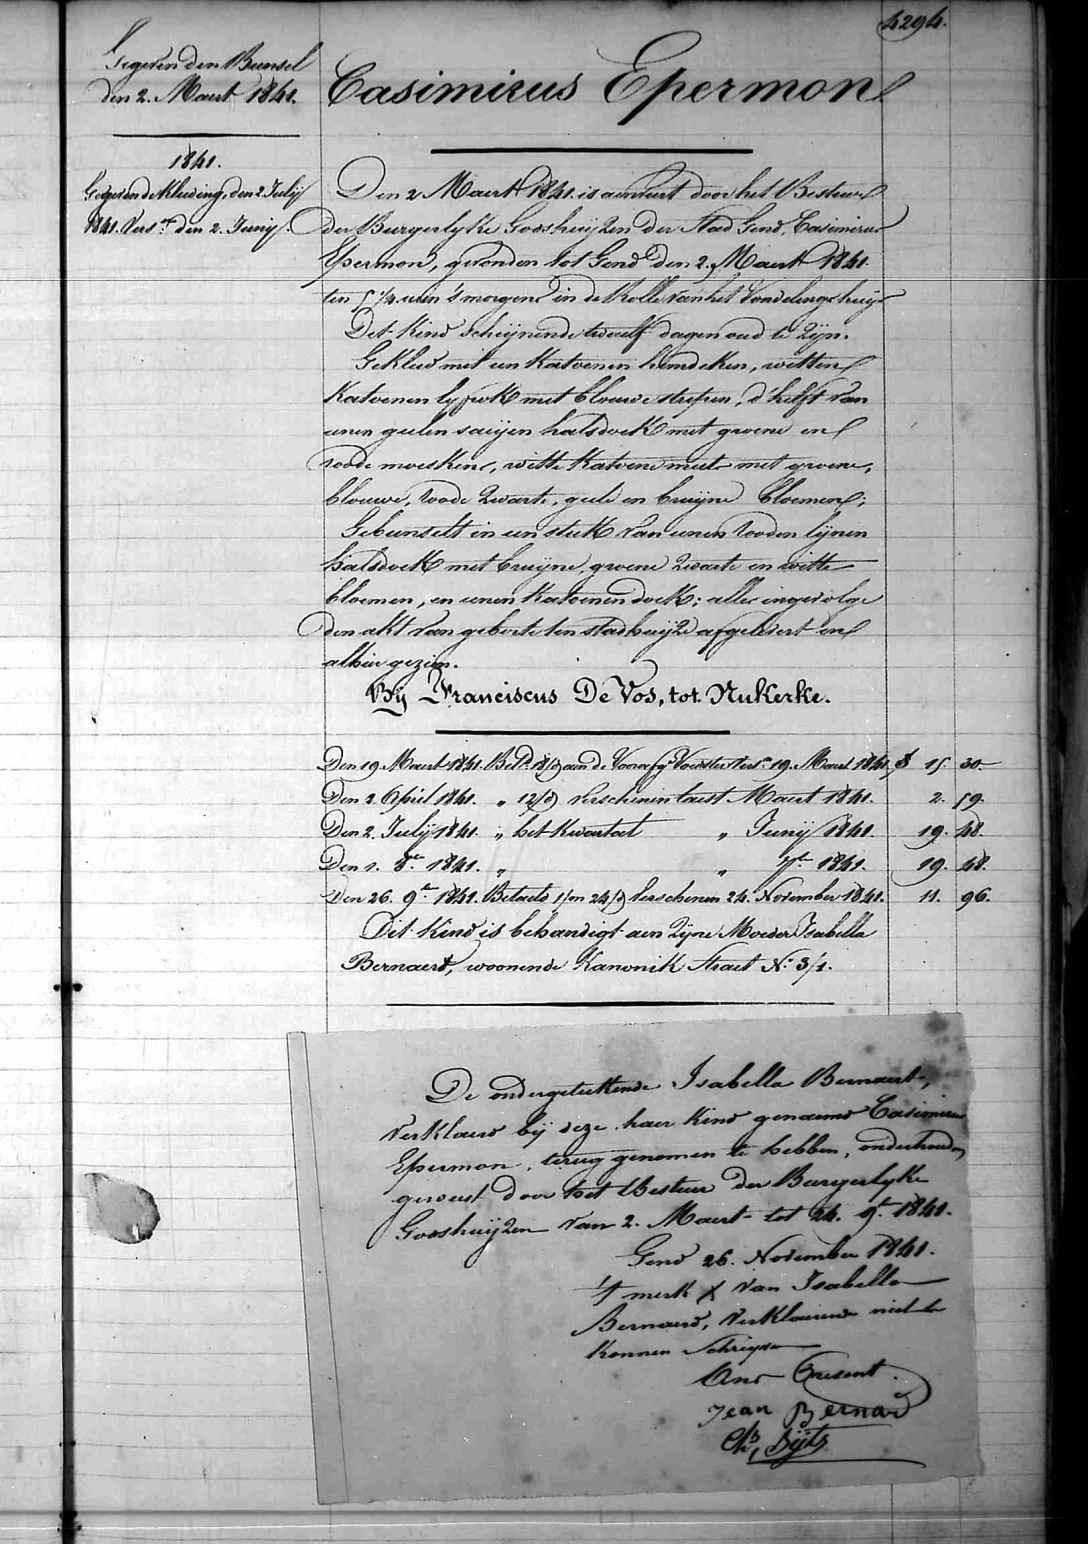 4294.
Gegeven den Bunsel
den 2. Maert 1841.
Casimirus Epermon
1841.
Gegeven de Kleeding, den 2 Julij
1841. Vers.n den 2. Junij.
Den 2 Maert 1841. is aenveert door het Bestuer
der Burgerlyke Godshuijzen der Stad Gend, Casimirus
Epermon, gevonden tot Gend den 2. Maert 1841.
ten 5 1/4 uren 's morgens in de Rolle van het Vondelings huijs
Dit Kind scheijnende twaelf dagen oud te Zijn.
Gekleed met een Katoenen hemdeken, witten
Katoenen lyfrok met blouwe strepen, d'helft van
eenen geelen saeijen halsdoek met groene en
roode moeskens, witte Katoene muts met groene,
blouwe, roode Zwarte, geele en bruijne bloemen;
Gebunselt in een stuk van eenen rooden lijnen
halsdoek met bruijne, groene Zwarte en witte
bloemen, en eenen Katoenen doek; alles ingevolge
den akt van geboorte ten stadhuijze afgelevert en
alhier gezien.
By Franciscus De Vos, tot Nukerke.
Den 19 Maert 1841. Bet.d 18/d aen de Voorafg.e Voedster Vers.n 19. Maert 1841. 15. 30.
Den 2. April 1841. „ 12/d Verschenen laest Maert 1841. 2. 59.
Den 2. Julij 1841. „ het Kwartael „ Junij 1841. 19. 48.
Den 1. 8.re 1841. „ „ 7.bre 1841. 19. 48.
Den 26. 9.re 1841. Betaeld 1/m 24/d Verschenen 24. November 1841. 11. 96.
Dit Kind is behandigt aen Zijne Moeder Isabella
Bernaert, woonende Kanonik Straet N.o 3/1.
De ondergeteekende Isabella Bernaert,
Verklaerd bij deze haer Kind genaemd Casimirus
Epermon, terug genomen te hebben, onderhouden
geweest door het Bestuer der Burgerlyke
Godshuijzen van 2. Maert tot 24. 9.r 1841.
Gend 26. November 1841.
't merk X van Isabella
Bernaerd, Verklaerende niet te
Konnen Schrijven
Present.
Jean Bernard